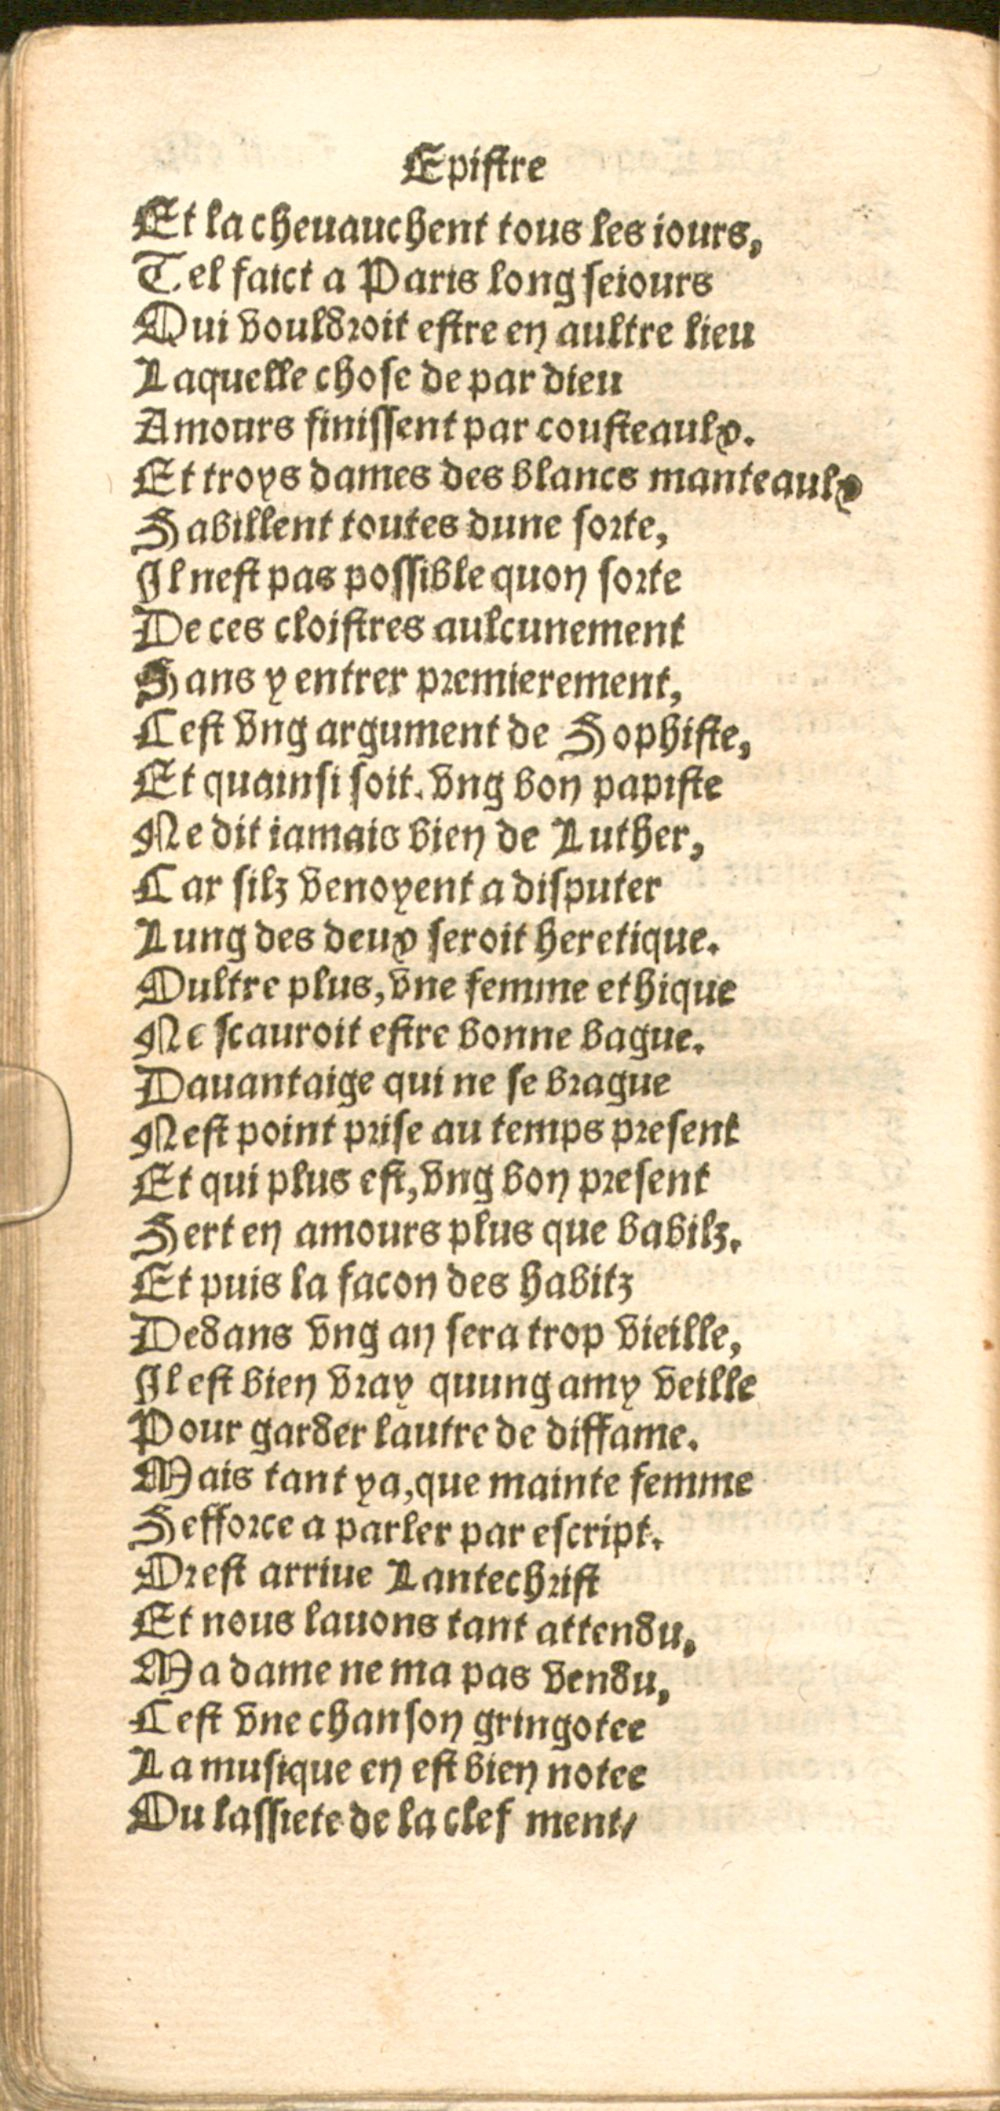 Epistre
Et la cheuauchent tous les iours,
Tel faict a Paris long seiours
Qui vouldroit estre en aultre lieu
Laquelle chose de par dieu
Amours finissent par cousteaulx.
Et troys dames des blancs manteaulx
Sabillent toutes dune sorte,
Il nest pas possible quon sorte
De ces cloistres aulcunement
Sans y entrer premierement,
Cest vng argument de Sophiste,
Et quainsi soit. vng bon papiste
Ne dit iamais bien de Luther,
Car silz venoyent a disputer
Lung des deux seroit heretique.
Oultre plus, vne femme ethique
Ne scauroit estre bonne bague.
Dauantaige qui ne se brague
Nest point prise au temps present
Et qui plus est, vng bon present
Sert en amours plus que babilz.
Et puis la facon des habitz
Dedans vng an sera trop vieille,
Il est bien vray quung amy veille
Pour garder lautre de diffame.
Mais tant ya, que mainte femme
Sefforce a parler par escript.
Orest arriue Lantechrist
Et nous lauons tant attendu,
Ma dame ne ma pas vendu,
Cest vne chanson gringotee
La musique en est bien notee
Ou lassiete de la clef ment/